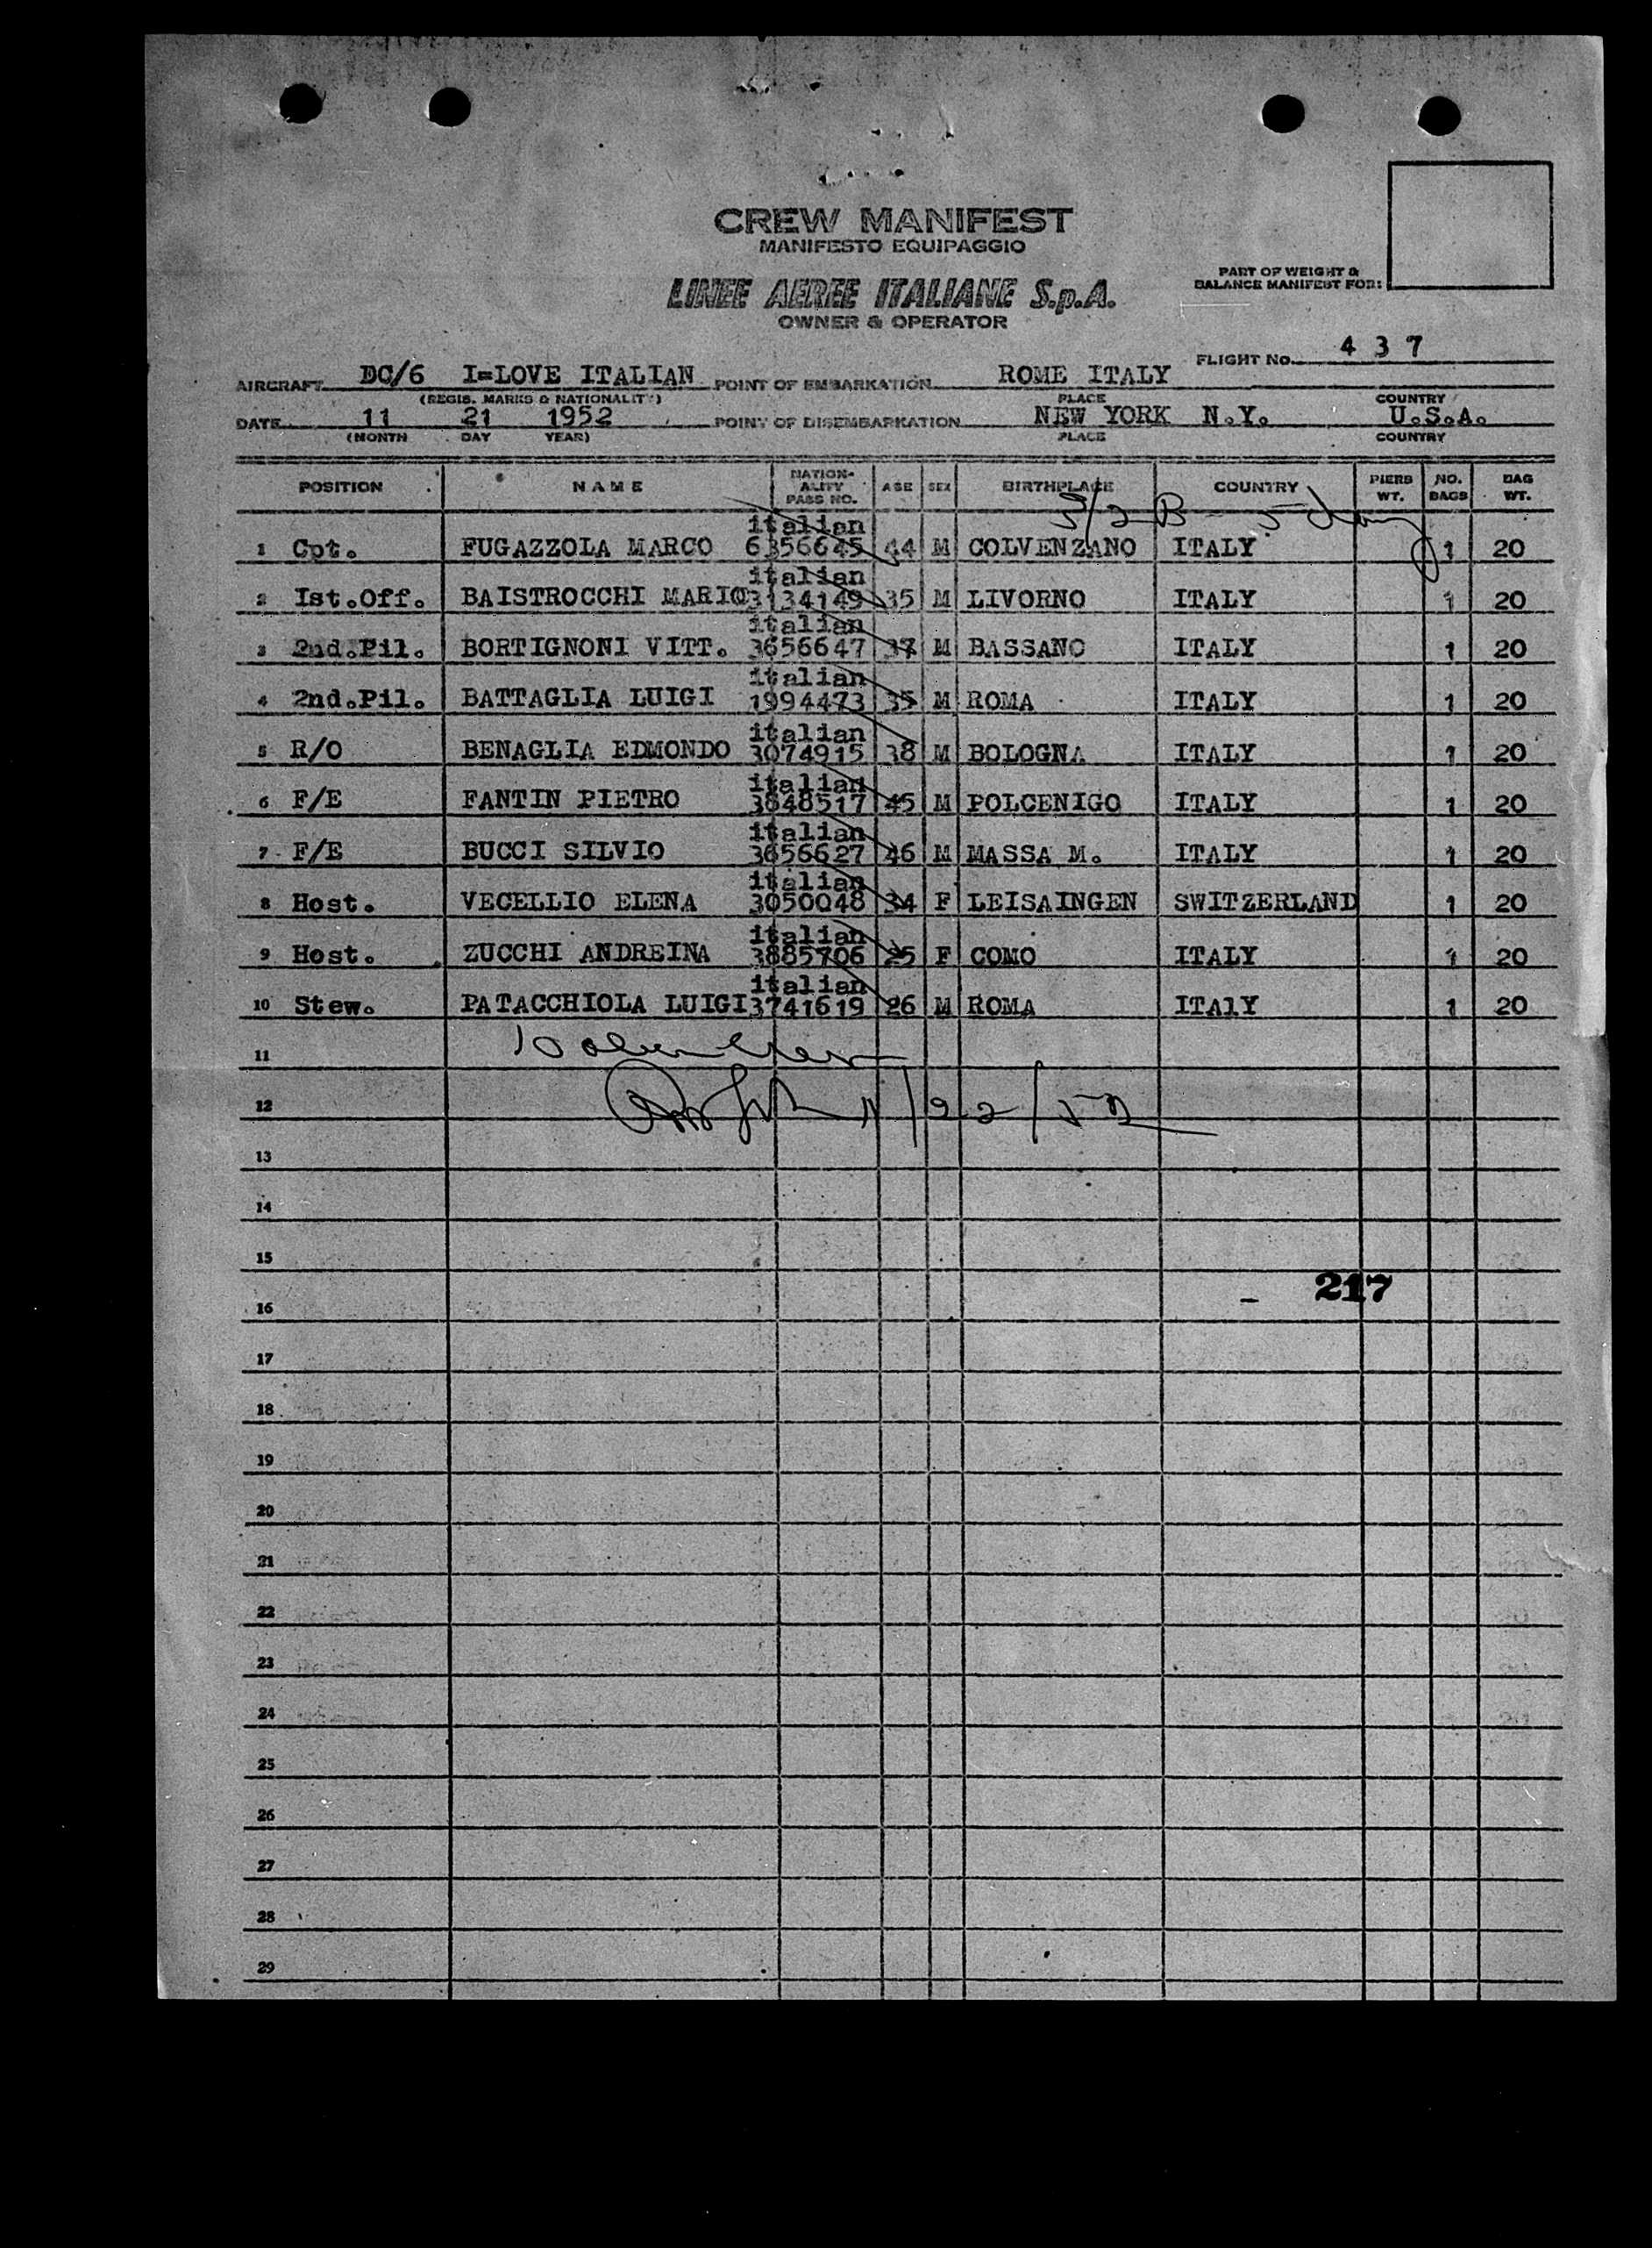 CREW MANIFEST
MANIFESTO EQUIPAGGIO
PART OF WEIGHT &
BALANCE MANIFEST FOR:
LINEE AEREE ITALIANE S.p.A.
OWNER & OPERATOR
FLIGHT No. 4 3 7
AIRCRAFT DC/6 I=LOVE ITALIAN POINT OF EMBARKATION ROME ITALY
(REGIS. MARKS & NATIONALITY) PLACE COUNTRY
DATE 11 21 1952 POINT OF DISEMBARKATION NEW YORK N.Y. U.S.A.
(MONTH DAY YEAR) PLACE COUNTRY
POSITION NAME NATION-ALITY PASS NO. AGE SEX BIRTHPLACE COUNTRY PIERS WT. NO. BAGS BAG WT.
italian
1 Cpt. FUGAZZOLA MARCO 6356645 44 M COLVENZANO ITALY 1 20
italian
2 Ist.Off. BAISTROCCHI MARIO 3134149 35 M LIVORNO ITALY 1 20
italian
3 2nd.Pil. BORTIGNONI VITT. 3656647 37 M BASSANO ITALY 1 20
italian
4 2nd.Pil. BATTAGLIA LUIGI 1994473 35 M ROMA ITALY 1 20
italian
5 R/O BENAGLIA EDMONDO 3074915 38 M BOLOGNA ITALY 1 20
italian
6 F/E FANTIN PIETRO 3848517 45 M POLCENIGO ITALY 1 20
italian
7 F/E BUCCI SILVIO 3656627 46 M MASSA M. ITALY 1 20
italian
8 Host. VECELLIO ELENA 3050048 34 F LEISAINGEN SWITZERLAND 1 20
italian
9 Host. ZUCCHI ANDREINA 3885706 25 F COMO ITALY 1 20
italian
10 Stew. PATACCHIOLA LUIGI 3741619 26 M ROMA ITAlY 1 20
11 10
12 11/22/52
13
14
15
217
16
17
18
19
20
21
22
23
24
25
26
27
28
29